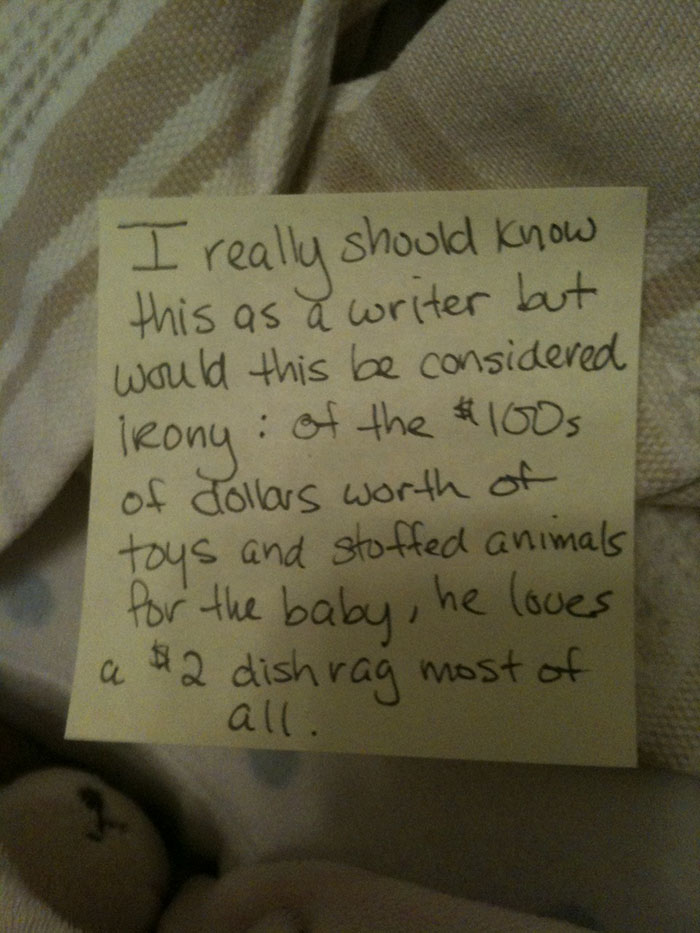 I really should know
this as a writer but
would this be considered
irony: of the $100s
of dollars worth of
toys and stuffed animals
for the baby, he loves
a $2 dish rag most of
all.